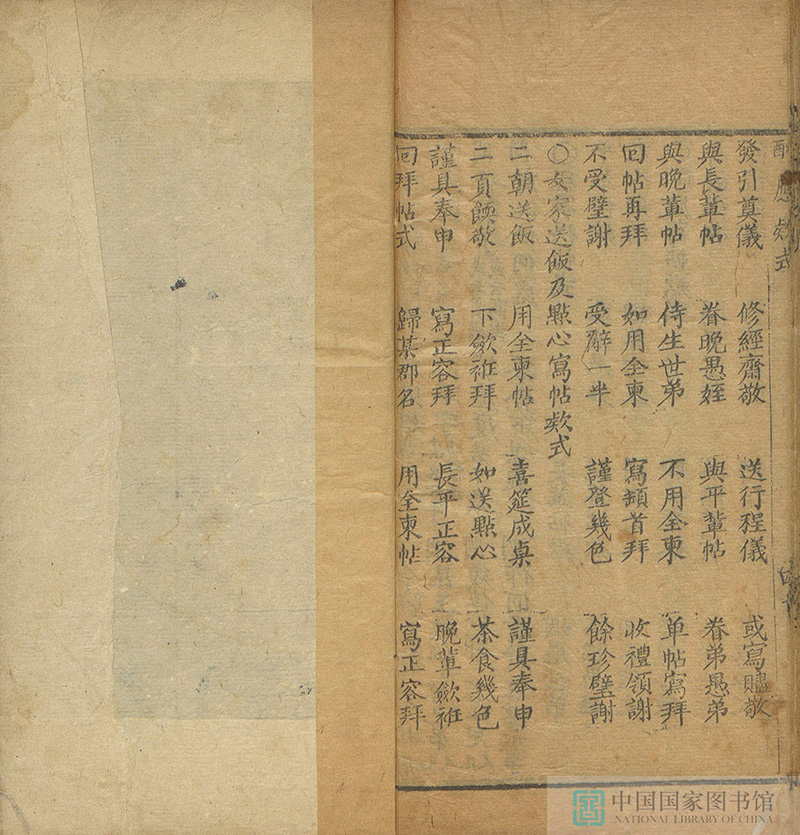 酬應欵式
發引奠儀 修經齋敬 送行程儀 或寫贐敬
與長軰帖 眷晚愚姪 與平軰帖 眷弟愚弟
與晚軰帖 侍生世弟 不用全柬 单帖寫拜
回帖再拜 如用全柬 寫頓首拜 收禮領謝
不受璧謝 受辭一半 謹登幾色 餘珍璧謝
〇女家送飯及點心寫帖欵式
二朝送飯 用全柬帖 喜筵成桌 謹具奉申
二頁餪敬 下歛袵拜 如送點心 茶食幾色
謹具奉申 寫正容拜 長平正容 晚軰歛袵
回拜帖式 歸某郡名 用全柬帖 寫正容拜
中国国家图书馆
NATIONAL LIBRARY OF CHINA